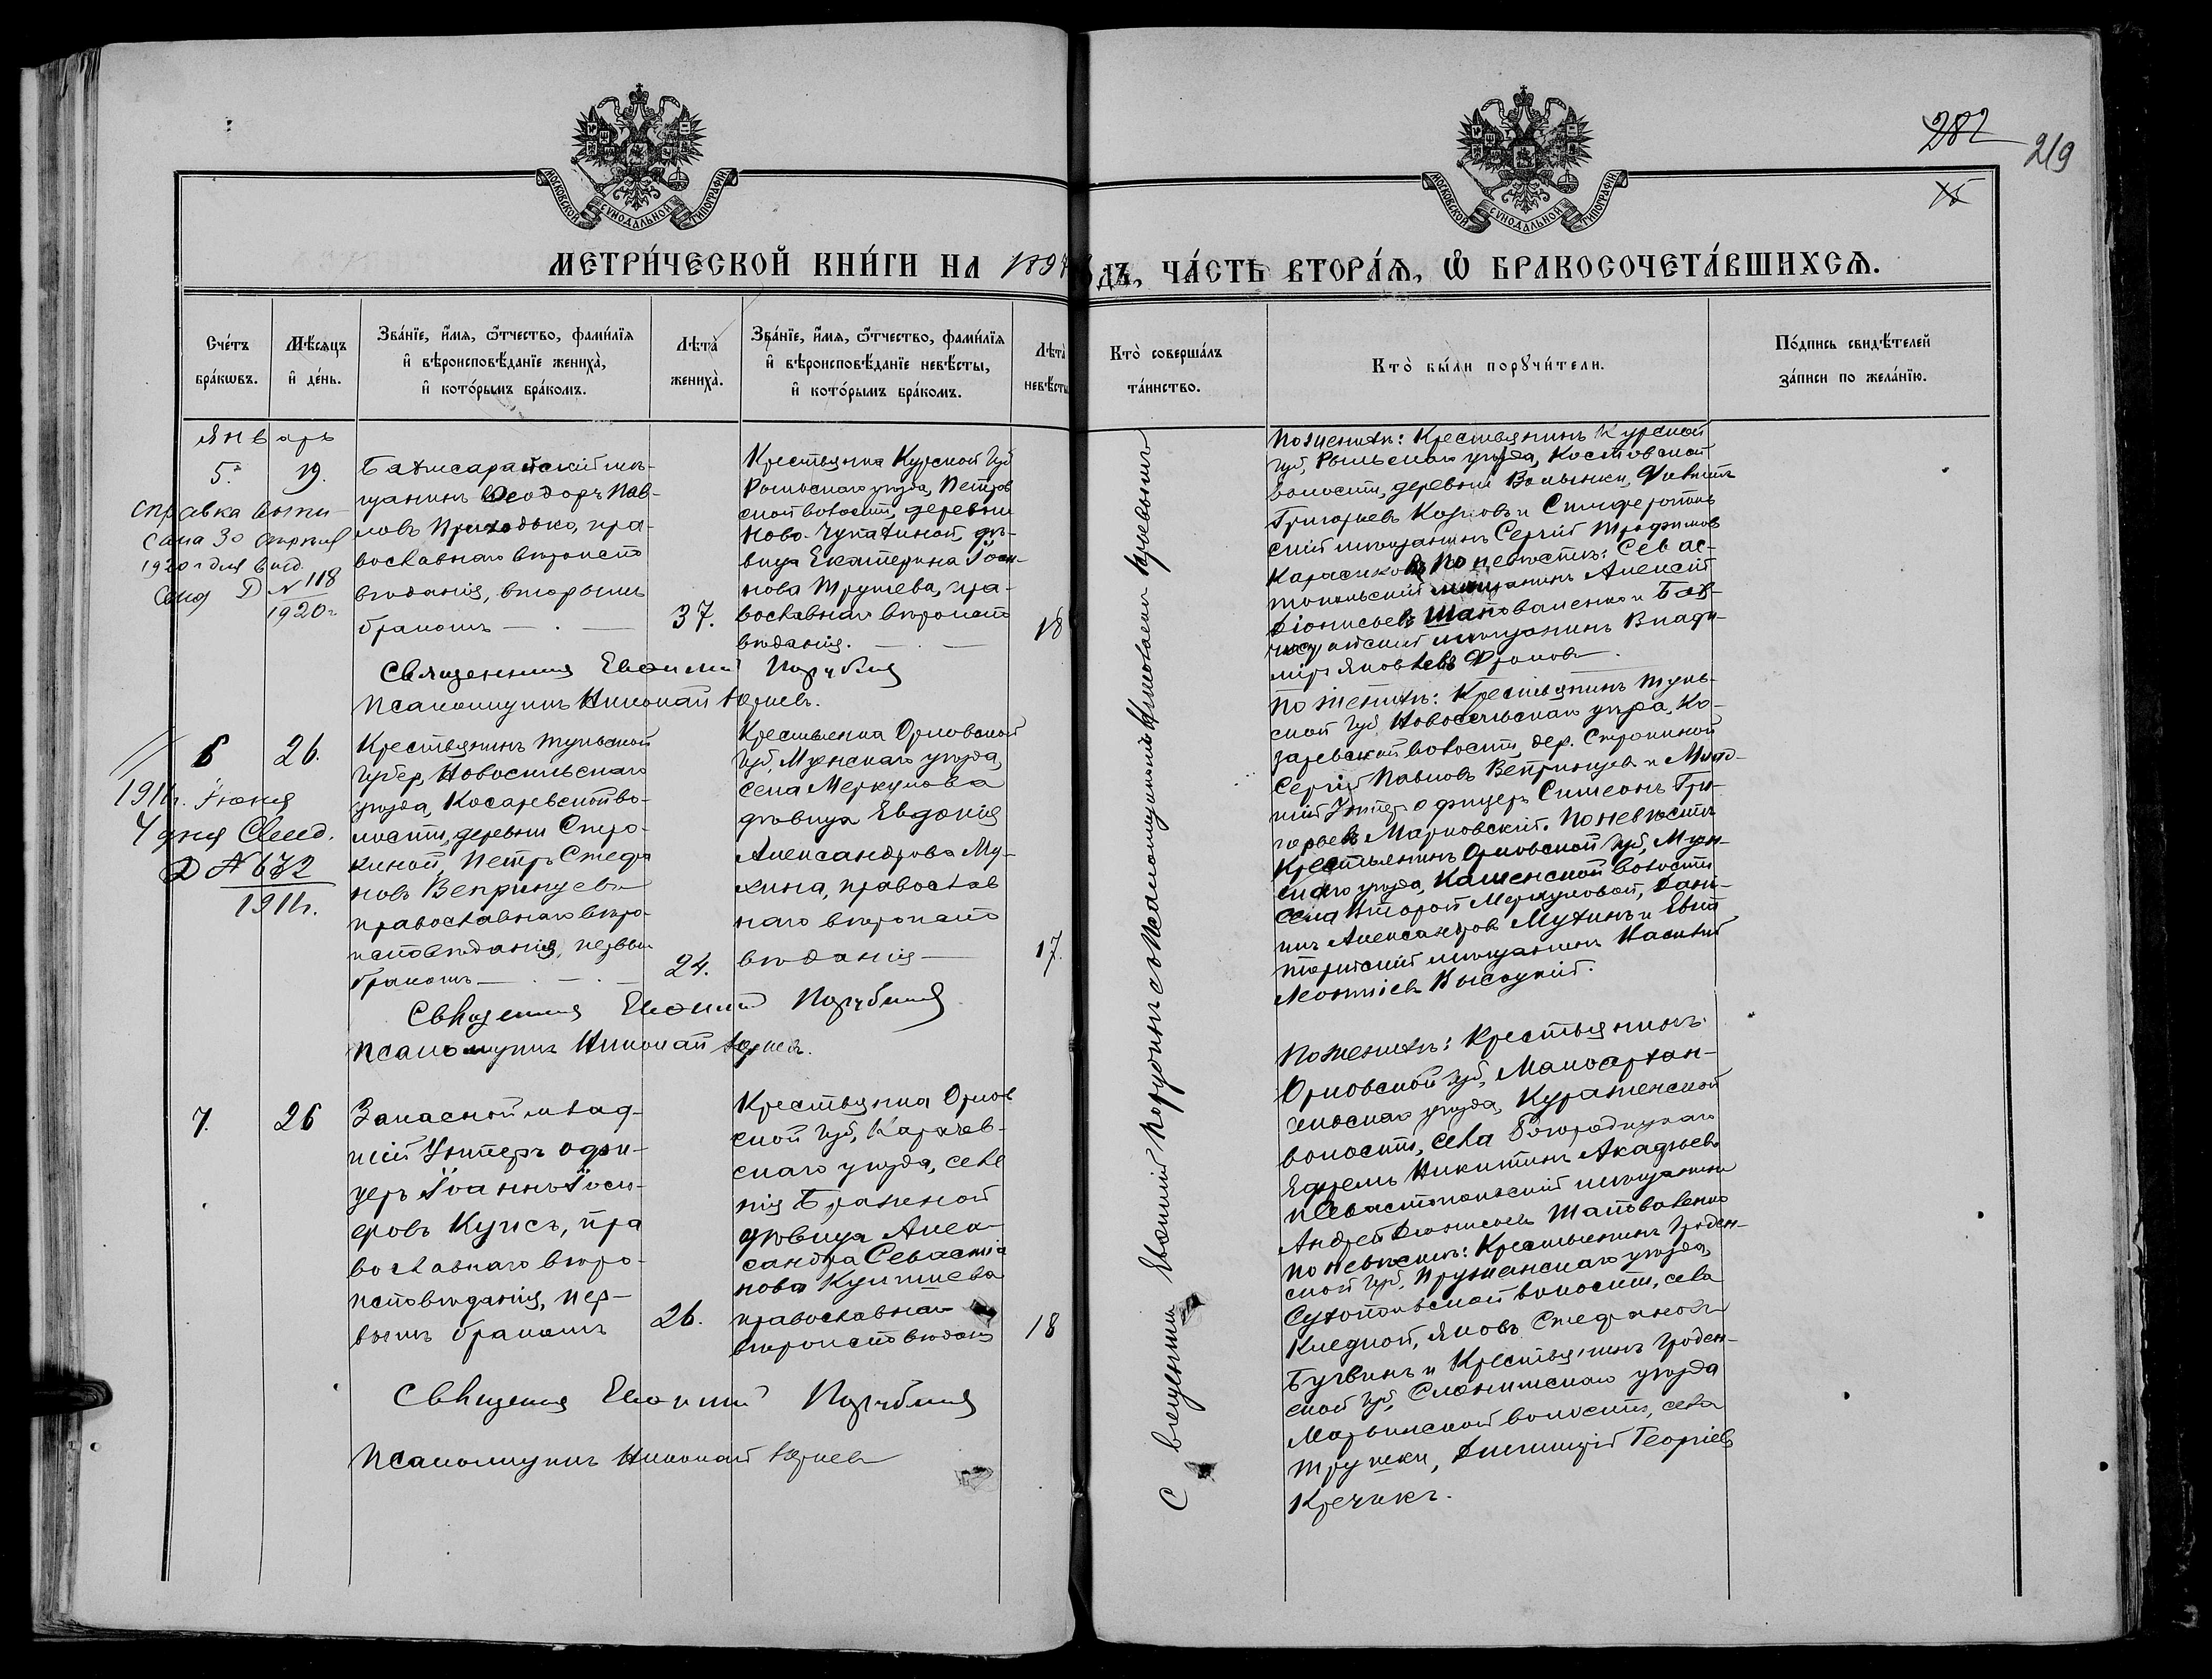 282
219
15
МОСКОВСКОЙ СѴНОДАЛЬНОЙ ТИПОГРАФІИ
МОСКОВСКОЙ СѴНОДАЛЬНОЙ ТИПОГРАФІИ
МЕТРИ́ЧЕСКОЙ КНИ́ГИ НА 189
ДЪ, ЧА́СТЬ ВТОРА́Я, Ѽ БРАКОСОЧЕТА́ВШИХСѦ.
Сче́тъ бра́кѡвъ.
Мѣ́сяцъ и҆ де́нь.
Зва́нїе, и҆́мя, ѻ҆́тчество, фами́лїя
и҆ вѣроисповѣ́данїе жениха̀,
и҆ кото́рымъ бра́комъ.
Лѣта̀ жениха̀.
Зва́нїе, и҆́мя, ѻ҆́тчество, фами́лїя
и҆ вѣроисповѣ́данїе невѣ́сты,
и҆ кото́рымъ бра́комъ.
Лѣта̀ невѣ́сты
Кто̀ соверша́лъ та́инство.
Кто̀ бы́ли порꙋчи́тели.
По́дпись свидѣ́телей за́писи по жела́нїю.
Январь
5. 19.
справка выпи-
сана 30
1920 г для
Д N 118
1920 г
Бахчисарайскій мѣ-
щанинъ Ѳеодоръ Пав-
ловъ Приходько, пра-
вославнаго вѣроиспо
вѣданія, вторымъ
бракомъ
37.
Крестьянка Курской Губ
Рыльскаго уѣзда, Петров
ской волости, деревни
Ново-Чупахиной, дѣ-
вица Екатерина Іоси-
фова Трушева, пра-
вославнаго вѣроиспо
вѣданія.
18
По женихѣ: Крестьянинъ Курской
губ, Рыльскаго уѣзда, Костовской
волости, деревни Волынки,
Григорьевъ Козловъ и Симферополь
скій мѣщанинъ Сергій Трофимовъ
Карасиковъ По невѣстѣ: Севас-
топольскій мѣщанинъ Алексѣй
Діонисьевъ Шаповаленко и Бах-
чисарайскій мѣщанинъ Влади-
міръ Яковлевъ
Священникъ Евѳимій
Псаломщикъ Николай
6 26.
1911г. Іюня
4 дня Свид.
Д N 632
1911г.
Крестьянинъ Тульской
Губер, Новосильскаго
уѣзда, Косаревской во-
лости, деревни Стро-
киной, Петръ Стефа
новъ Вепринцевъ
православнаго вѣро-
исповѣданія, первым
бракомъ
24.
Крестьянка Орловской
Губ, Мценскаго уѣзда,
села Меркулова
дѣвица Евдокія
Александрова Му-
хина, православ
наго вѣроиспо
вѣданія
17.
По женихѣ: Крестьянинъ Туль-
ской Губ, Новосильскаго уѣзда, Ко-
заревской волости, дер. Строкиной
Сергій Павловъ Вепринцевъ и Млад-
шій Унтеръ офицеръ Симеонъ Гри-
горьевъ Марковскій. По невѣстѣ
Крестьянинъ Орловской Губ, Мцен-
скаго уѣзда, Каменской волости
села Второй Меркуловой, Дані-
илъ Александровъ Мухинъ и Евпа
торійскій мѣщанинъ Василій
Леонтіевъ Высоцкій.
Священникъ Евѳимій
Псаломщикъ Николай
7. 26
Запасной млад-
шій Унтеръ офи-
церъ Іоаннъ Іоси-
фовъ Кулисъ, пра
вославнаго вѣро-
исповѣданія, пер-
вымъ бракомъ
26.
Крестьянка Орлов
ской Губ, Карачев-
скаго уѣзда, селе
нія Бражной
дѣвица Алек-
сандра Севастіа
нова
православнаго
вѣроисповѣдан
18
По женихѣ: Крестьянинъ
Орловской губ, Малоархан-
гельскаго уѣзда,
волости, села Богородицкаго
Ефремъ Никитинъ Акафьевъ
и Севастопольскій мѣщанинъ
Андрей Діонисьевъ Шаповаленко
По невѣстѣ: Крестьянинъ Гроден-
ской губ, Пружанскаго уѣзда,
Сухопольской волости, села
Яковъ Стефановъ
и Крестьянинъ Гроден-
ской губ, Слонимскаго уѣзда
волости, села
Димитрій Георгіевъ
Кречикъ.
Священникъ Евѳимій
Псаломщикъ Николай
Священникъ Евѳимій съ Псаломщикомъ Николаемъ